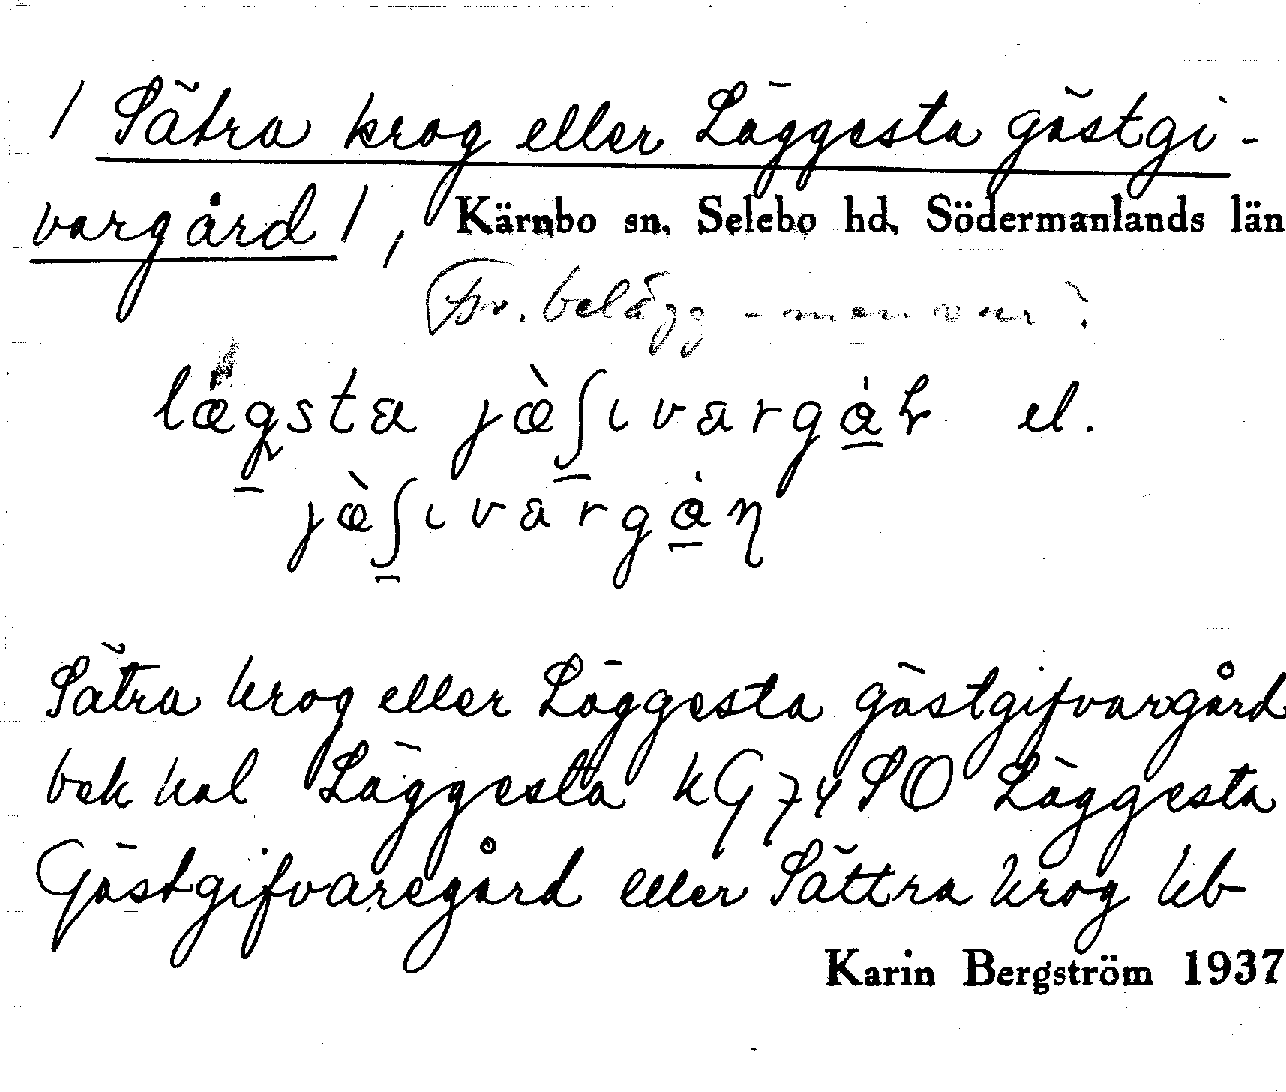 / Sätra krog eller Läggesta gästgi-
vargård /, Kärnbo sn, Selebo hd, Södermanlands län
belägg - men var?
lægsta jæ̀ʃɩvargå̀ɽ el.
jæ̀ʃɩvargå̀ɳ
Sätra krog eller Läggesta gästgifvargård
bek kal Läggesta kG 74 SO Läggesta
Gästgifvaregård eller Sättra krog kb
Karin Bergström 1937